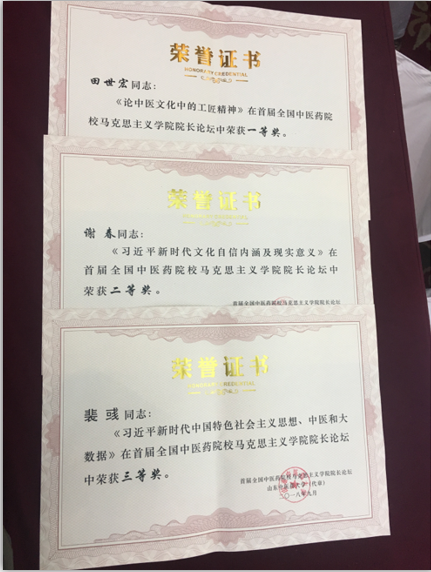 荣誉证书
HONORARY CREDENTIAL
田世宏同志：
《论中医文化中的工匠精神》在首届全国中医药院
校马克思主义学院院长论坛中荣获一等奖。
荣誉证书
HONORARY CREDENTIAL
谢春同志：
《习近平新时代文化自信内涵及现实意义》在
首届全国中医药院校马克思主义学院院长论坛中
荣获二等奖。
首届全国中医药院校马克思主义学院院长论坛
荣誉证书
HONORARY CREDENTIAL
裴彧同志：
《习近平新时代中国特色社会主义思想、中医和大
数据》在首届全国中医药院校马克思主义学院院长论坛
中荣获三等奖。
首届全国中医药院校马克思主义学院院长论坛
山东中医药大学（代章）
二〇一八年九月